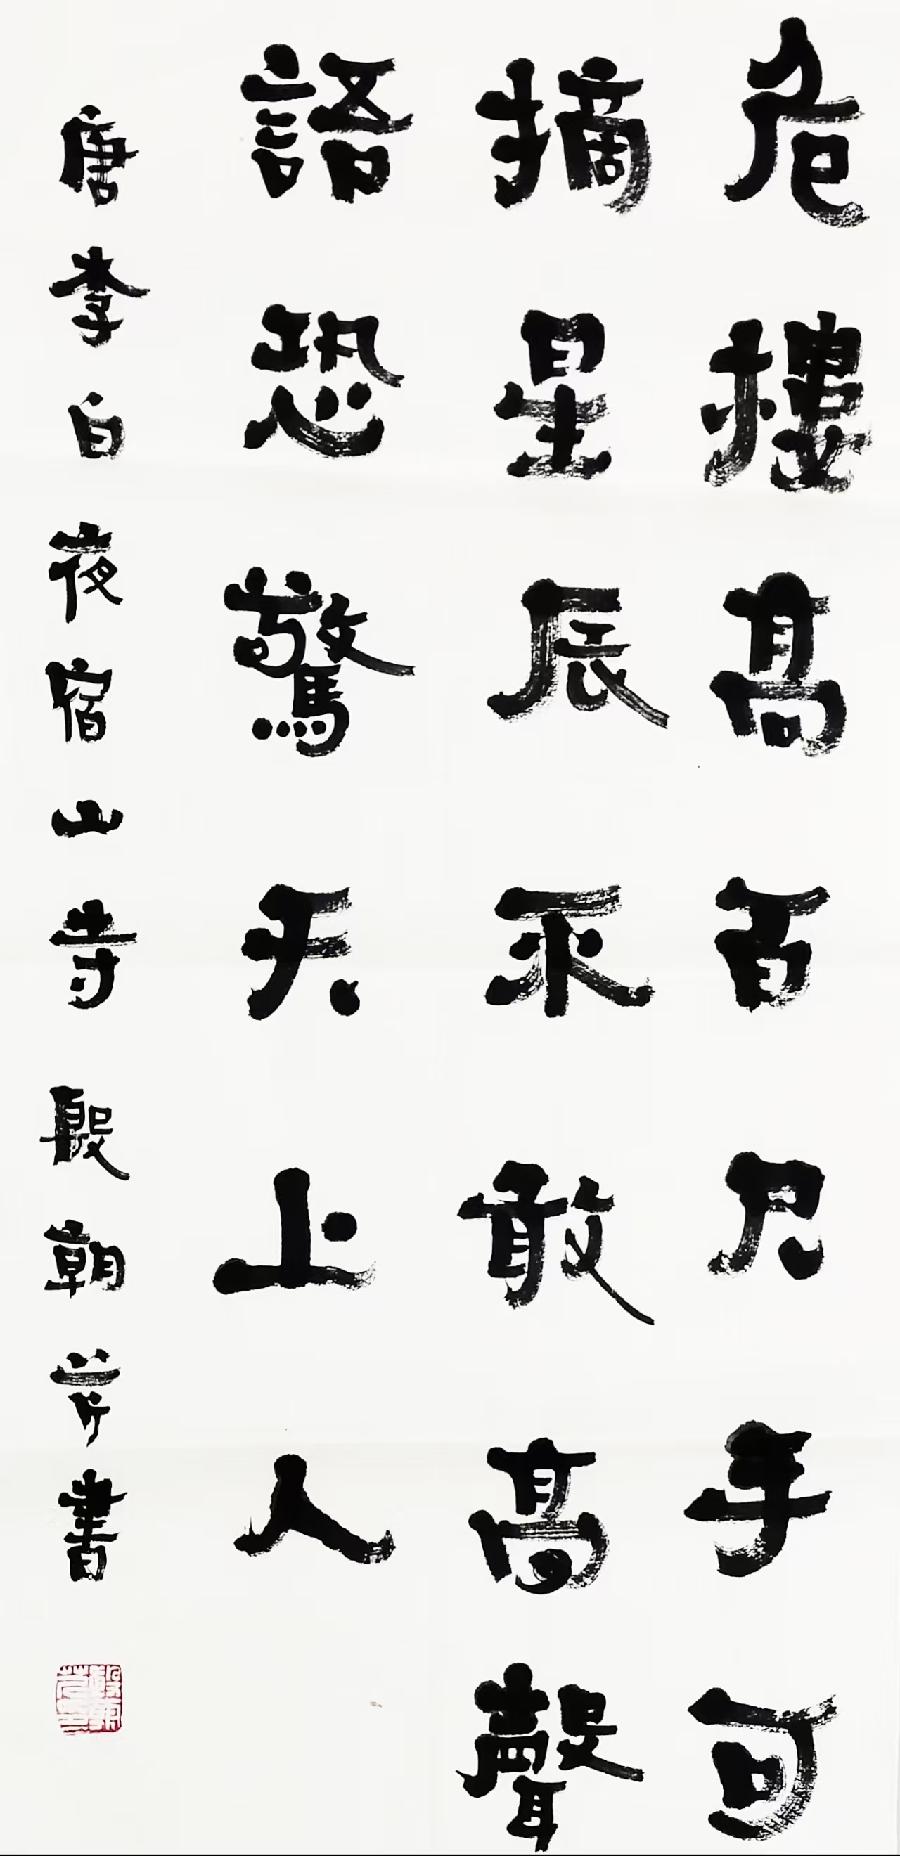 危樓高百尺手可
摘星辰不敢高聲
語恐驚天上人
唐李白夜宿山寺殷朝芳書